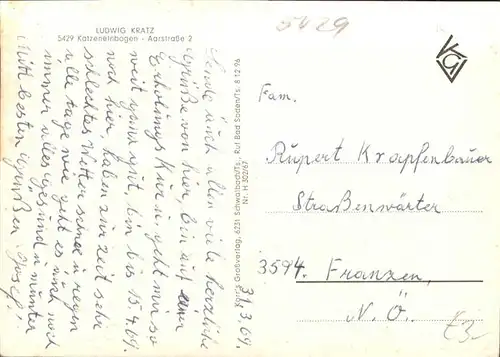 LUDWIG KRATZ
5429 Katzenelnbogen - Aarstraße 2
5429
31.3.69.
Sende euch allen viele herzliche
Grüße von hier, bin auf ein
Erholungs Kur u. geht mir so
weit ganz gut, bin bis 13.4.69.
noch hier, haben zur Zeit sehr
schlechtes Wetter schnee u. regen
alle tage wie geht es euch noch
immer alles gesund u. munter
Mitt besten Grüßen Josef,
Verlag, 6231 Schwalbach/Ts., Ruf Bad Soden/Ts. 8 12 96
Nr. H 302/67
Fam.
Rupert Krapfenbauer
Straßenwärter
3594. Franzen,
N.Ö.
€3-